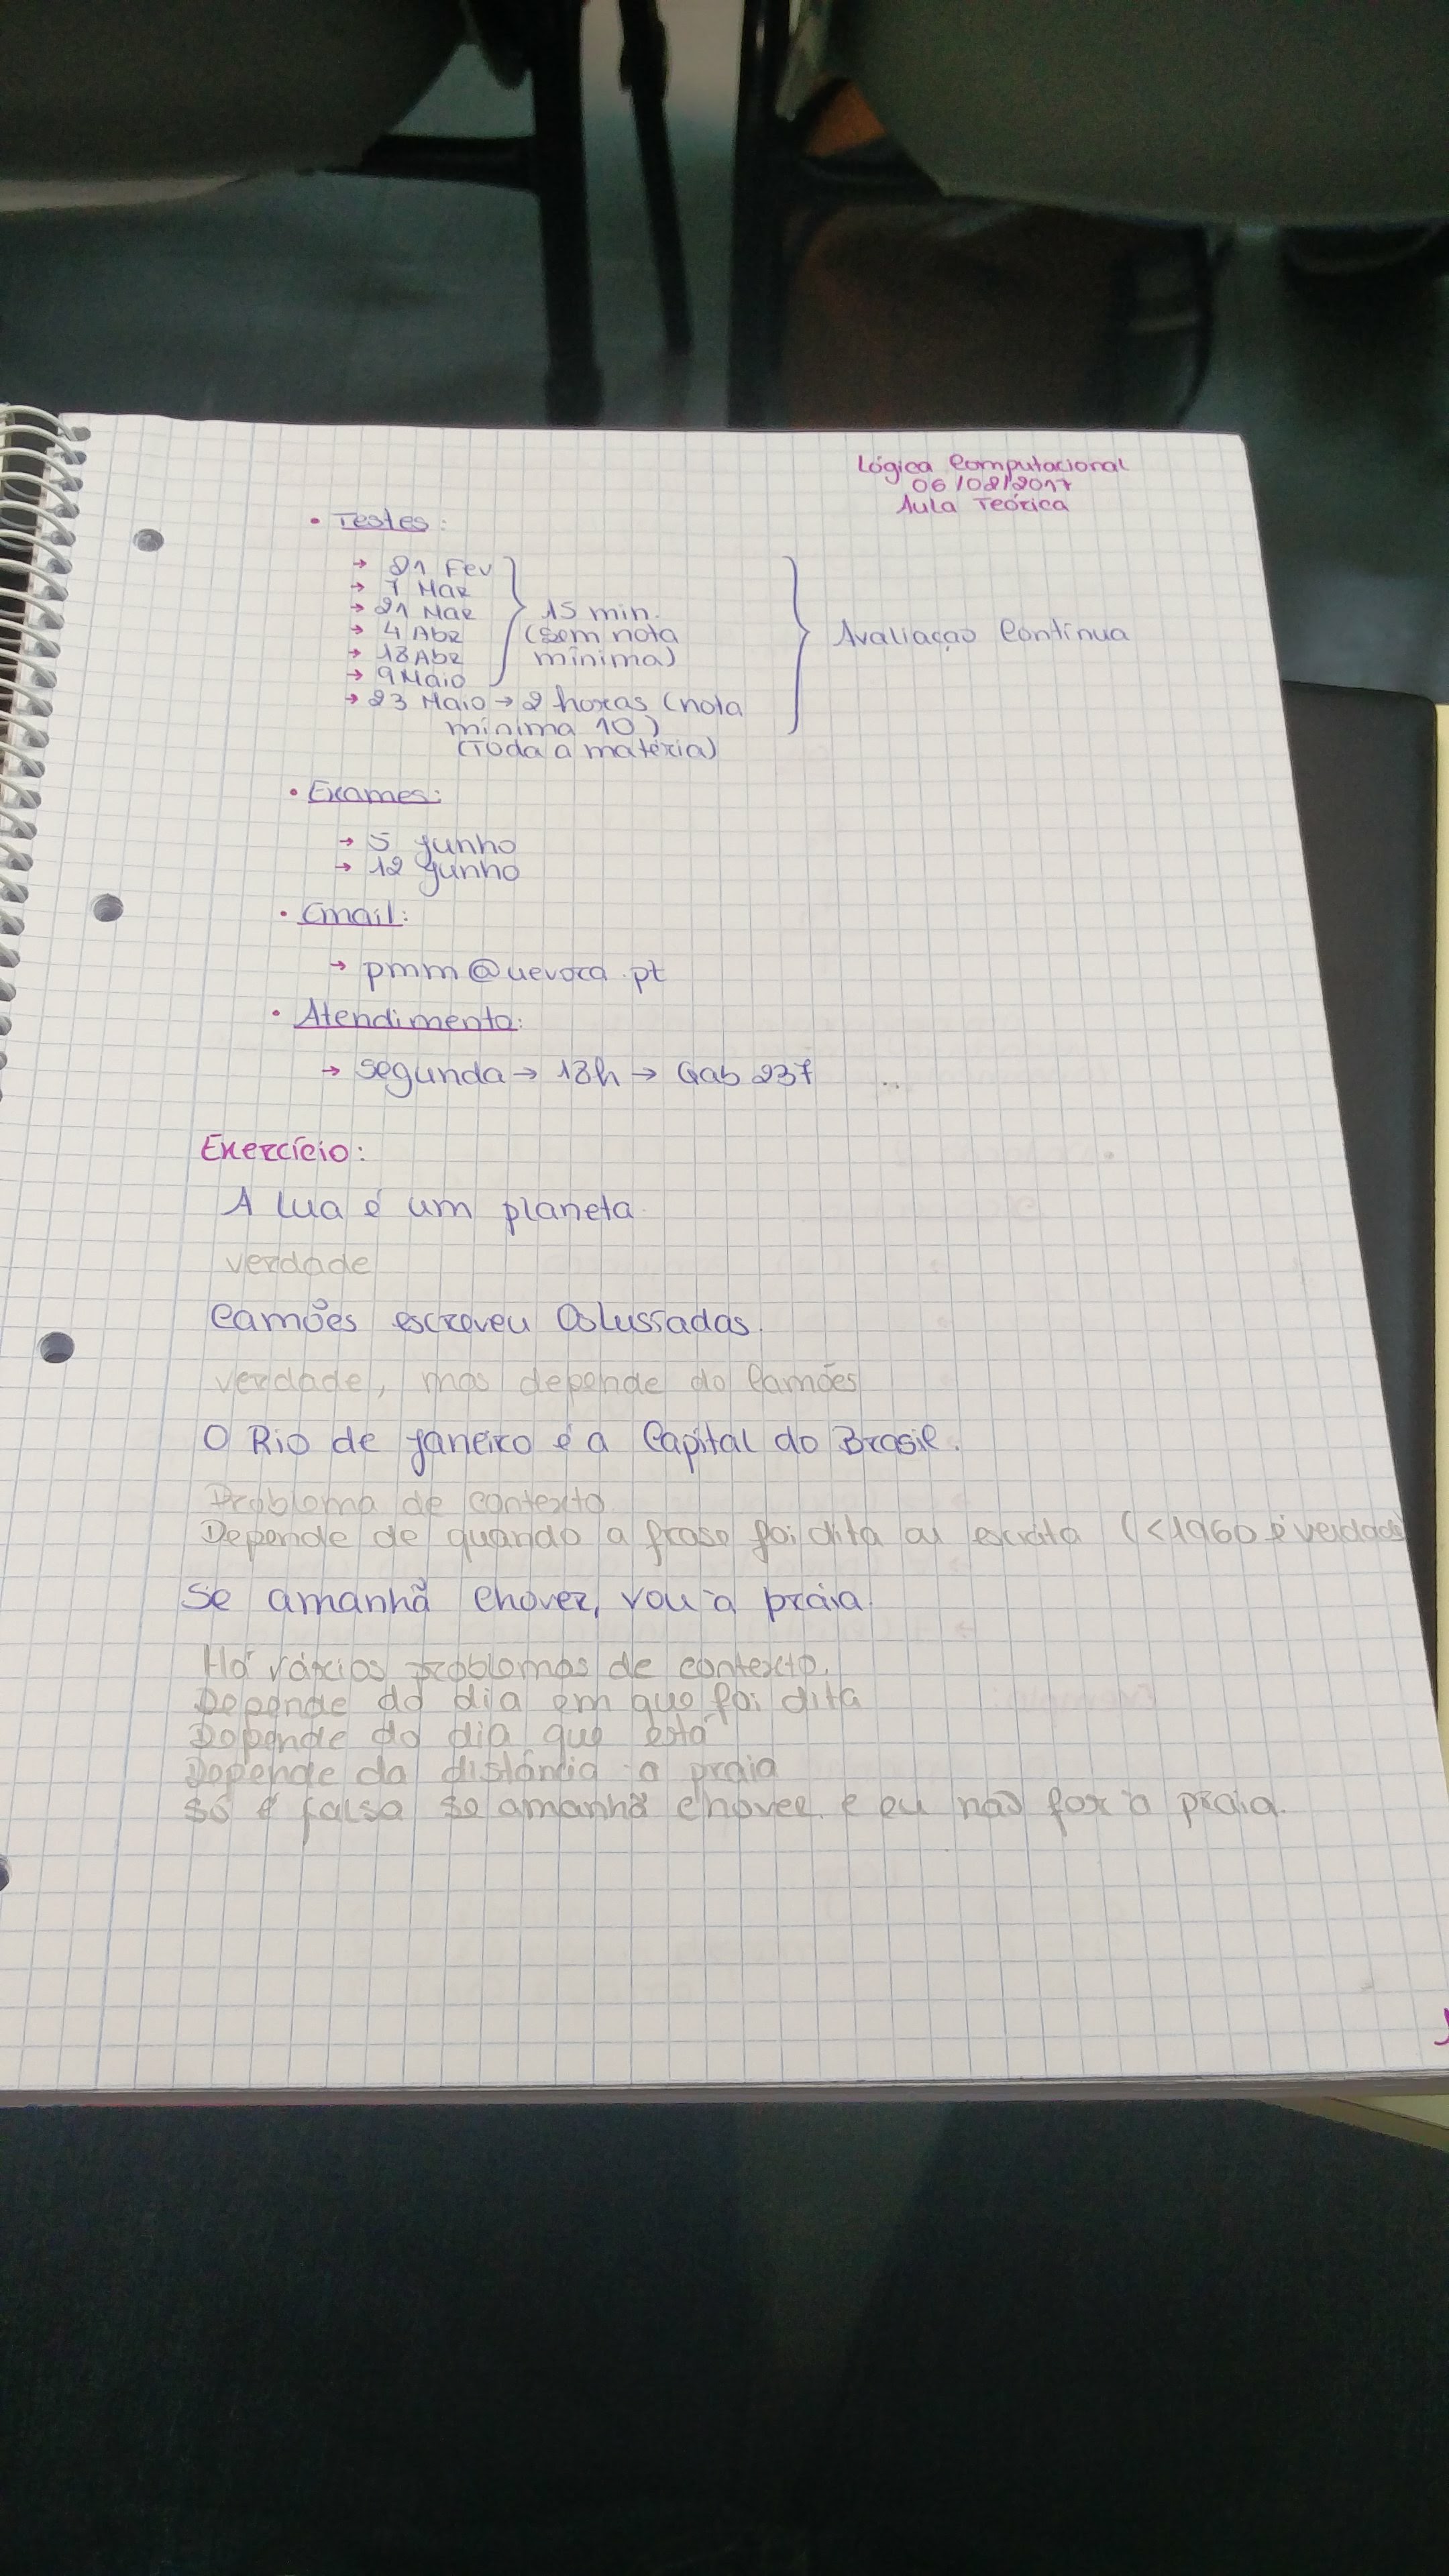 Lógica Computacional
06/02/2017
Aula Teórica
• Testes:
→ 21 Fev
→ 7 Mar
→ 21 Mar
→ 4 Abr
→ 18 Abr
→ 9 Maio
15 min.
(sem nota
mínima)
→ 23 Maio → 2 horas (nota
mínima 10)
(Toda a matéria)
Avaliação Contínua
• Exames:
→ 5 Junho
→ 12 Junho
• Email:
→ pmm@uevora.pt
• Atendimento:
→ Segunda → 18h → Gab 237
Exercício:
A lua é um planeta
verdade
Camões escreveu Os Lusíadas.
verdade, mas depende do Camões
O Rio de Janeiro é a Capital do Brasil.
Problema de contexto
Depende de quando a frase foi dita ou escrita (<1960 é verdade
Se amanhã chover, vou à praia.
Há vários problemas de contexto.
Depende do dia em que foi dita
Depende do dia que está
Depende da distância à praia
Só é falsa se amanhã chover e eu não for à praia.